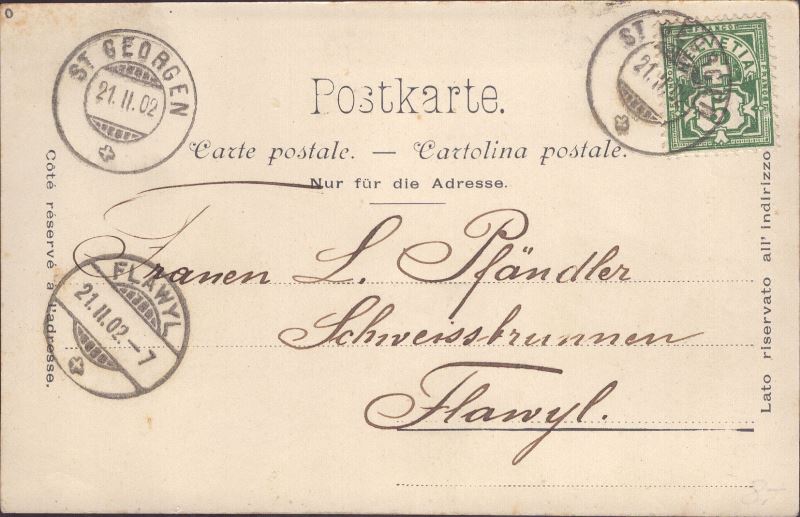 ST GEORGEN
21.II.02
ST
21.II
FRANCO
HELVETIA
5
Postkarte.
Carte postale. — Cartolina postale.
Nur für die Adresse.
Côté réservé à l'adresse.
Lato riservato all' indirizzo
L. Pfändler
Schweissbrunnen
Flawyl.
FLAWYL
21.II.02.–7
8.-